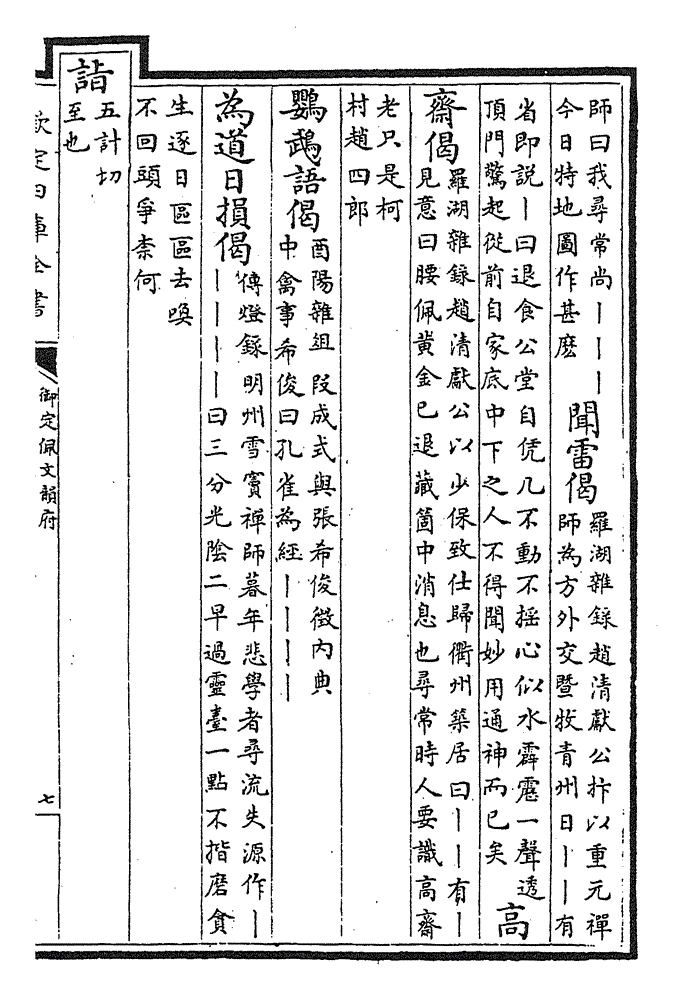 師曰我尋常尚丨丨丨
今日特地圖作甚麽
聞雷偈
羅湖雜錄趙清獻公抃以重元禪
師為方外交暨牧青州日丨丨有
省即説丨曰退食公堂自凭几不動不摇心似水霹靂一聲透
頂門驚起從前自家底中下之人不得聞妙用通神而已矣
高
齋偈
羅湖雜錄趙清獻公以少保致仕歸衢州築居曰丨丨有丨
見意曰腰佩黃金已退藏箇中消息也尋常時人要識高齋
老只是柯
村趙四郎
鸚䳇語偈
酉陽雜俎段成式與張希俊徵内典
中禽事希俊曰孔雀為經丨丨丨丨
為道日損偈
傳燈錄明州雪竇禪師暮年悲學者尋流失源作丨
丨丨丨丨曰三分光陰二早過靈臺一點不揩磨貪
生逐日區區去喚
不回頭爭柰何
詣
五計切
至也
欽定四庫全書
御定佩文韻府
七